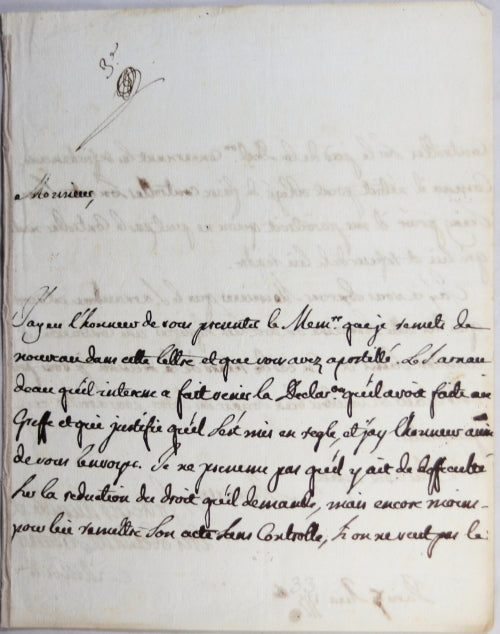 3.e
Messieurs,
J'ay eu l'honneur de vous presenter le Mem.re que je remets de
nouveau dans cette lettre et que vous avez apostillé. Le S. arnau
deau qu'il interesse a fait venir la Declar.on qu'il avoit faite au
Greffe et que justifie qu'il s'est mis en regle, et j'ay l'honneur aussi
de vous l'envoyer. Je ne presume pas qu'il y ait de difficulté
sur la reduction du droit qu'il demande, mais encore moins
pour lui remettre son acte sans Controlle, si on ne veut pas le